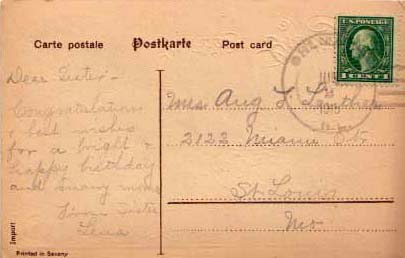 Carte postale Postkarte Post card
U.S. POSTAGE
1 CENT 1
Dear Sister -
Congratulations
& best wishes
for a bright &
happy birthday
and many more
Your Sister
Lena
Mrs. Aug L
2122 Miami St
St. Louis
Mo.
Import
Printed in Saxony